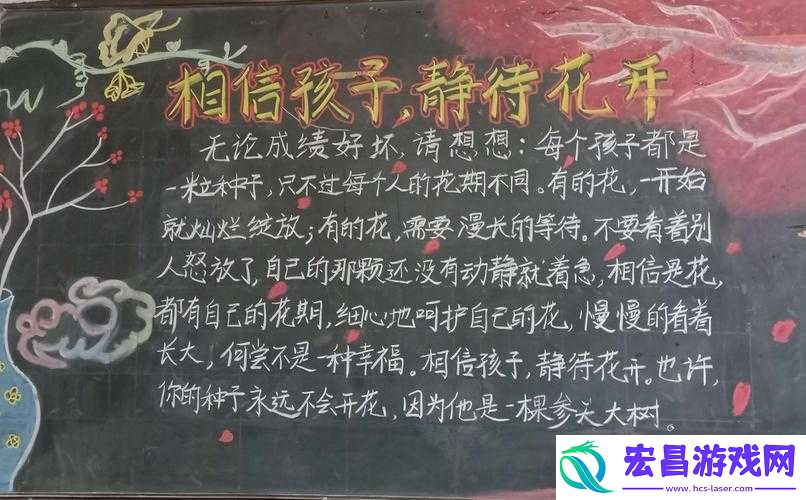 相信孩子，静待花开
无论成绩好坏，请想想：每个孩子都是
一粒种子，只不过每个人的花期不同。有的花，一开始
就灿烂绽放；有的花，需要漫长的等待。不要看着别
人怒放了，自己的那颗还没有动静就着急，相信是花，
都有自己的花期，细心地呵护自己的花，慢慢的看着
长大，何尝不是一种幸福。相信孩子，静待花开。也许，
你的种子永远不会开花，因为他是一棵参天大树。
宏昌游戏网
www.hcs-laser.com